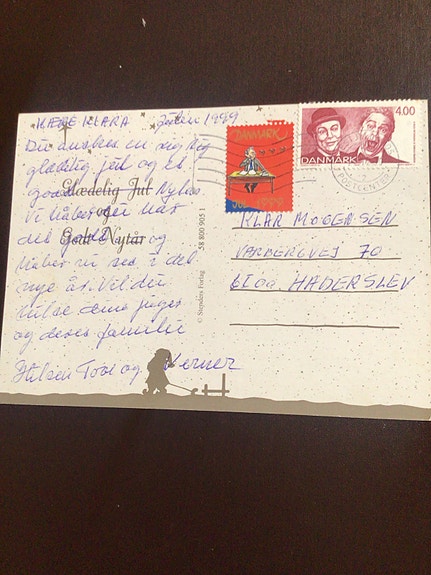 KÆRE KLARA Julen 1999
Du ønskes en rigtig
glædelig jul og et
godt Nytår
Vi håber du har
det godt og
håber vi ses i det
nye år. Vil du
hilse dine piger
og deres familie
Hilsen Tove og Verner
Glædelig Jul
og
Godt Nytår
© Stenders Forlag 58 800 905 1
DANMARK
JUL 1999
4.00
DANMARK
POSTCENTER
KLAR MOGENSEN
VARBERGVEJ 70
6100 HADERSLEV